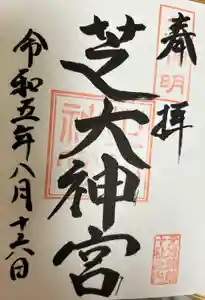 奉拝
芝大神宮
令和五年八月十六日